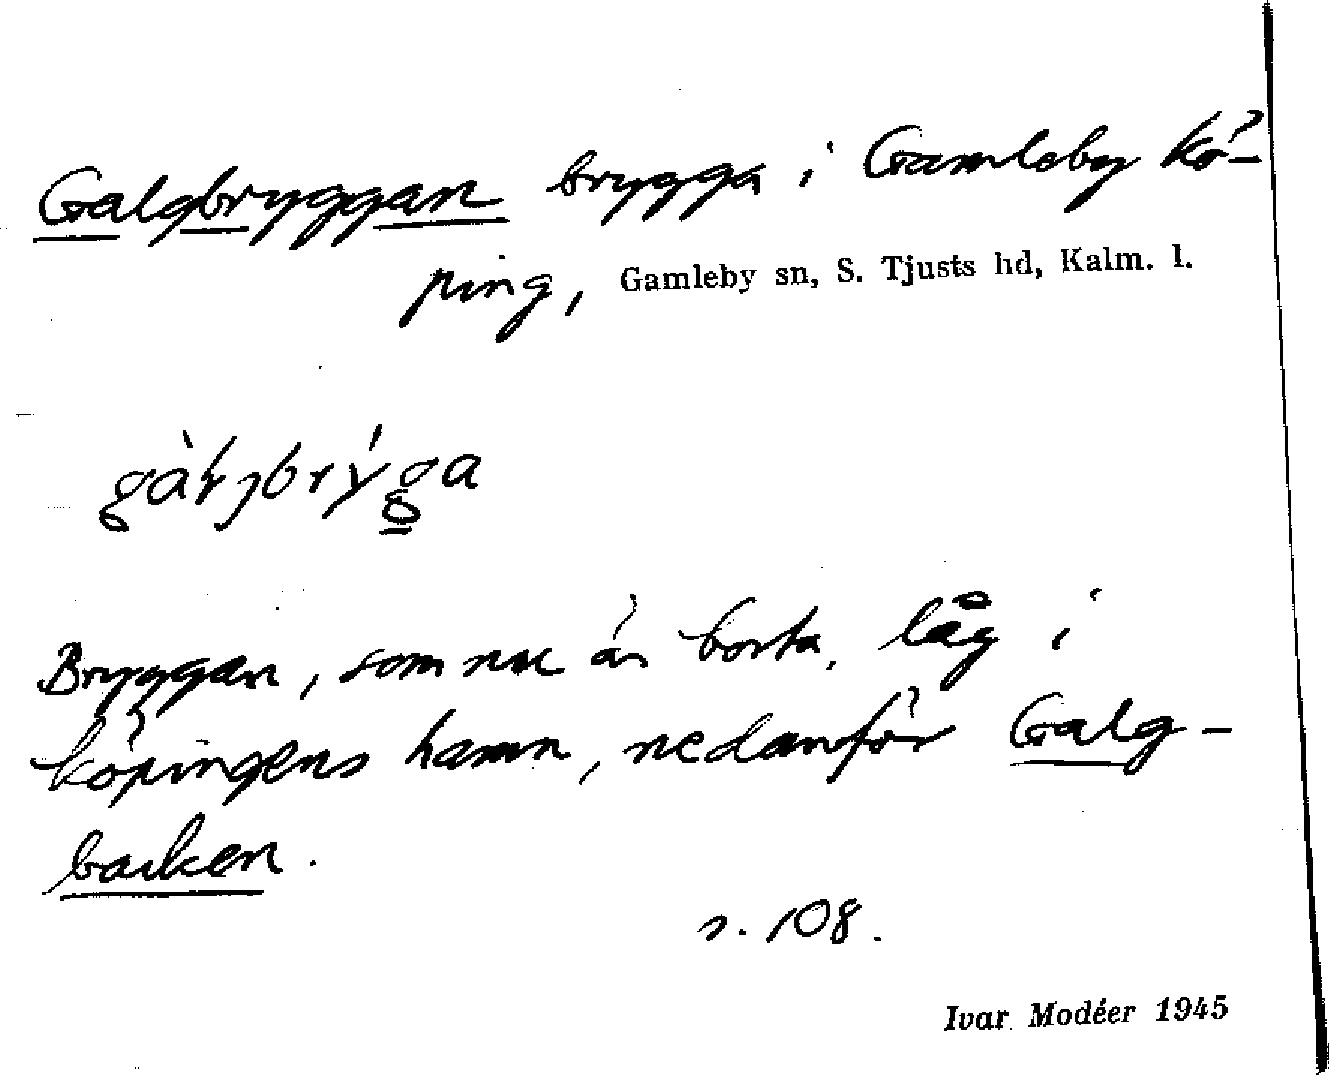 Galgbryggan brygga i Gamleby kö-
ping, Gamleby sn, S. Tjusts hd, Kalm. l.
Bryggan, som nu är borta, låg i
köpingens hamn, nedanför Galg-
backen.
s. 108.
Ivar Modéer 1945